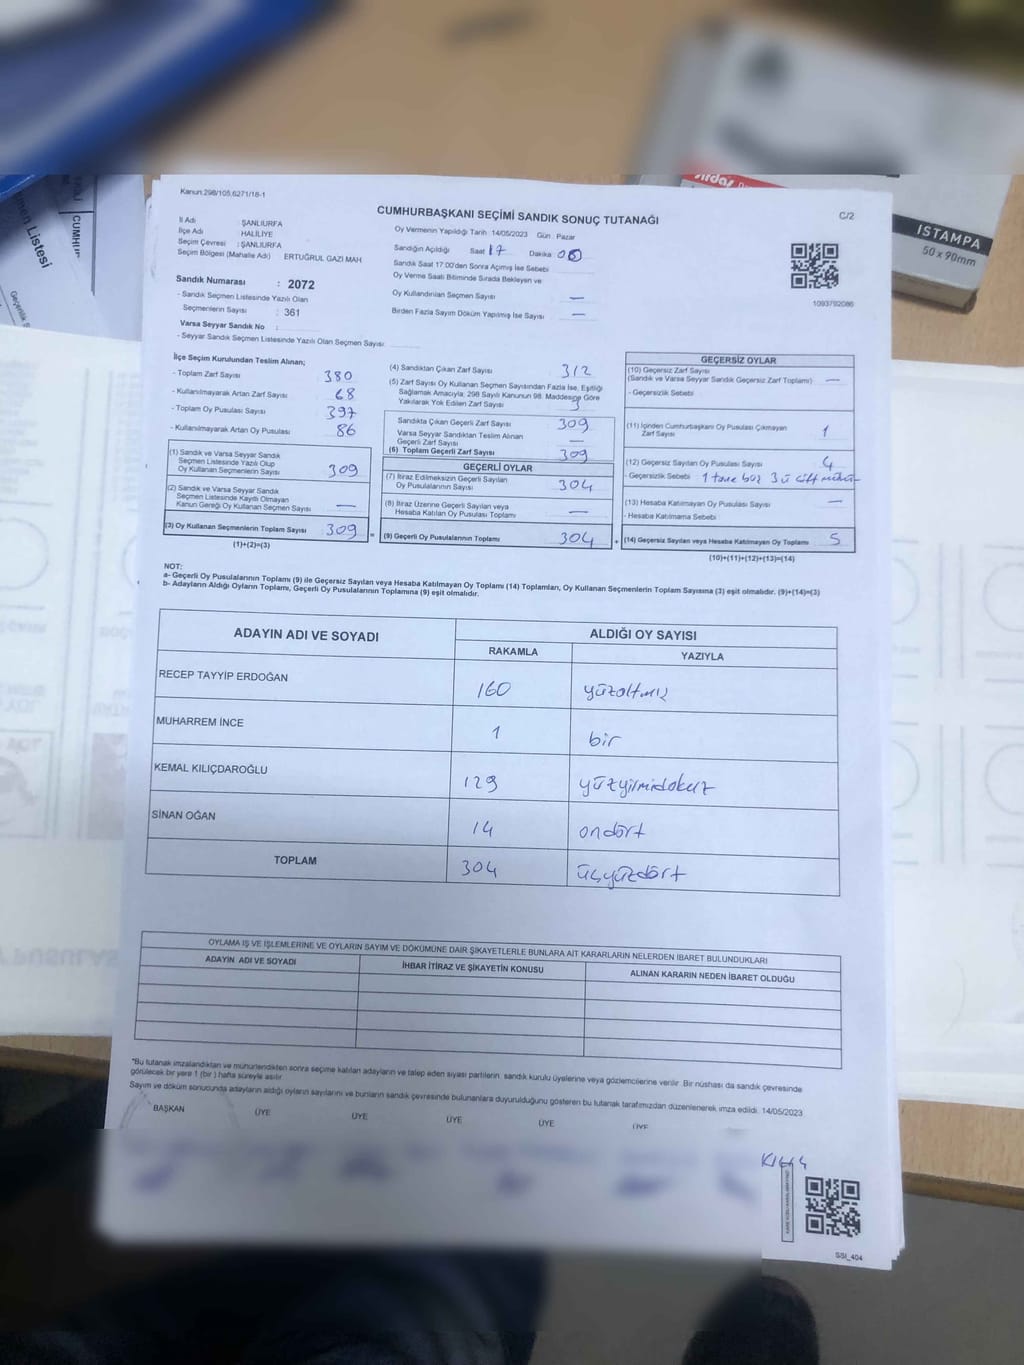 Kanun.298/105,6271/18-1
CUMHURBAŞKANI SEÇİMİ SANDIK SONUÇ TUTANAĞI
C/2
İl Adı : ŞANLIURFA
İlçe Adı : HALİLİYE
Seçim Çevresi : ŞANLIURFA
Seçim Bölgesi (Mahalle Adı) ERTUĞRUL GAZİ MAH
Sandık Numarası : 2072
- Sandık Seçmen Listesinde Yazılı Olan
Seçmenlerin Sayısı : 361
Varsa Seyyar Sandık No :
- Seyyar Sandık Seçmen Listesinde Yazılı Olan Seçmen Sayısı:
Oy Vermenin Yapıldığı Tarih 14/05/2023 Gün : Pazar
Sandığın Açıldığı Saat 17 Dakika 00
Sandık Saat 17.00'den Sonra Açımış İse Sebebi
Oy Verme Saati Bitiminde Sırada Bekleyen ve
Oy Kullandırılan Seçmen Sayısı —
Birden Fazla Sayım Döküm Yapılmış İse Sayısı —
1093792086
İlçe Seçim Kurulundan Teslim Alınan;
- Toplam Zarf Sayısı 380
- Kullanılmayarak Artan Zarf Sayısı 68
- Toplam Oy Pusulası Sayısı 397
- Kullanılmayarak Artan Oy Pusulası 86
(1) Sandık ve Varsa Seyyar Sandık
Seçmen Listesinde Yazılı Olup
Oy Kullanan Seçmenlerin Sayısı 309
(2) Sandık ve Varsa Seyyar Sandık
Seçmen Listesinde Kayıtlı Olmayan
Kanun Gereği Oy Kullanan Seçmen Sayısı —
(3) Oy Kullanan Seçmenlerin Toplam Sayısı 309
(1)+(2)=(3)
(4) Sandıktan Çıkan Zarf Sayısı 312
(5) Zarf Sayısı Oy Kullanan Seçmen Sayısından Fazla İse, Eşitliği
Sağlamak Amacıyla, 298 Sayılı Kanunun 98. Maddesine Göre
Yakılarak Yok Edilen Zarf Sayısı 3
Sandıkta Çıkan Geçerli Zarf Sayısı 309
Varsa Seyyar Sandıktan Teslim Alınan
Geçerli Zarf Sayısı —
(6) Toplam Geçerli Zarf Sayısı 309
GEÇERLİ OYLAR
(7) İtiraz Edilmeksizin Geçerli Sayılan
Oy Pusulalarının Sayısı 304
(8) İtiraz Üzerine Geçerli Sayılan veya
Hesaba Katılan Oy Pusulası Toplamı —
= (9) Geçerli Oy Pusulalarının Toplamı 304 +
GEÇERSİZ OYLAR
(10) Geçersiz Zarf Sayısı
(Sandık ve Varsa Seyyar Sandık Geçersiz Zarf Toplamı) —
- Geçersizlik Sebebi
(11) İçinden Cumhurbaşkanı Oy Pusulası Çıkmayan
Zarf Sayısı 1
(12) Geçersiz Sayılan Oy Pusulası Sayısı 4
- Geçersizlik Sebebi : 1 tane boş 3 ü çift mühür
(13) Hesaba Katılmayan Oy Pusulası Sayısı —
- Hesaba Katılmama Sebebi
(14) Geçersiz Sayılan veya Hesaba Katılmayan Oy Toplamı 5
(10)+(11)+(12)+(13)=(14)
NOT:
a- Geçerli Oy Pusulalarının Toplamı (9) ile Geçersiz Sayılan veya Hesaba Katılmayan Oy Toplamı (14) Toplamları, Oy Kullanan Seçmenlerin Toplam Sayısına (3) eşit olmalıdır. (9)+(14)=(3)
b- Adayların Aldığı Oyların Toplamı, Geçerli Oy Pusulalarının Toplamına (9) eşit olmalıdır.
ADAYIN ADI VE SOYADI ALDIĞI OY SAYISI
RAKAMLA YAZIYLA
RECEP TAYYİP ERDOĞAN 160 yüzaltmış
MUHARREM İNCE 1 bir
KEMAL KILIÇDAROĞLU 129 yüzyirmidokuz
SİNAN OĞAN 14 ondört
TOPLAM 304 üçyüzdört
OYLAMA İŞ VE İŞLEMLERİNE VE OYLARIN SAYIM VE DÖKÜMÜNE DAİR ŞİKAYETLERLE BUNLARA AİT KARARLARIN NELERDEN İBARET BULUNDUKLARI
ADAYIN ADI VE SOYADI İHBAR İTİRAZ VE ŞİKAYETİN KONUSU ALINAN KARARIN NEDEN İBARET OLDUĞU
*Bu tutanak imzalandıktan ve mühürlendikten sonra seçime katılan adayların ve talep eden siyasi partilerin sandık kurulu üyelerine veya gözlemcilerine verilir. Bir nüshası da sandık çevresinde
görülecek bir yere 1 (bir) hafta süreyle asılır.
Sayım ve döküm sonucunda adayların aldığı oyların sayılarını ve bunların sandık çevresinde bulunanlara duyurulduğunu gösteren bu tutanak tarafımızdan düzenlenerek imza edildi. 14/05/2023
BAŞKAN ÜYE ÜYE ÜYE ÜYE ÜYE
SSI_404
ISTAMPA
50 x 90mm
men Listesi